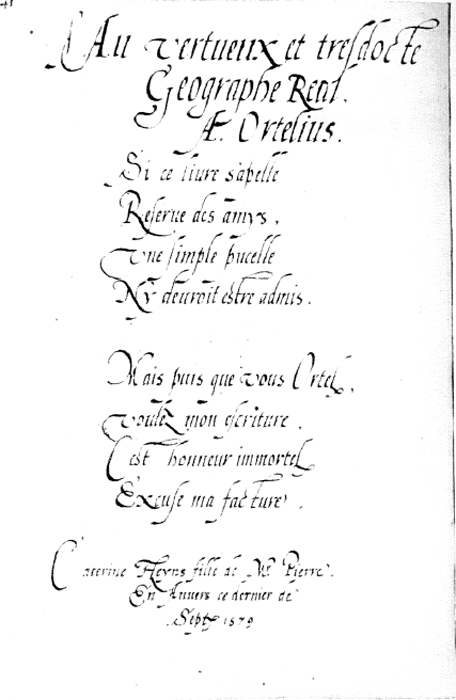 Au vertueux et tresdocte
Geographe Real.
Æ. Ortelius.
Si ce livre s'apelle
Reserve des amys,
Vne simple pucelle
N'y devroit estre admis.
Mais puis que vous Ortel,
voulez mon escriture,
C'est honneur immortel
Excuse ma facture.
Caterine Heyns fille de Mr. Pierre.
En Anvers ce dernier de
Septe 1579